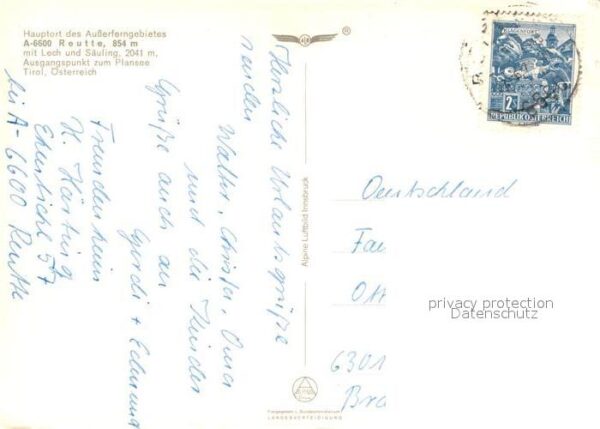 Hauptort des Außerferngebietes
A-6600 Reutte, 854 m
mit Lech und Säuling, 2041 m,
Ausgangspunkt zum Plansee
Tirol, Österreich
Herzliche Urlaubsgrüße
senden
Walter, Christa, Oma
und die Kinder
Grüße auch an
Gerdi + Edmund
Fremdenheim
H. Härting
Ehenbichl 57
bei A-6600 Reutte
Alpine Luftbild Innsbruck
KLAGENFURT
2
REPUBLIK ÖSTERREICH
Deutschland
Fa
Ott
6301
Bra
privacy protection
Datenschutz
Freigegeben v. Bundesministerium
LANDESVERTEIDIGUNG
®